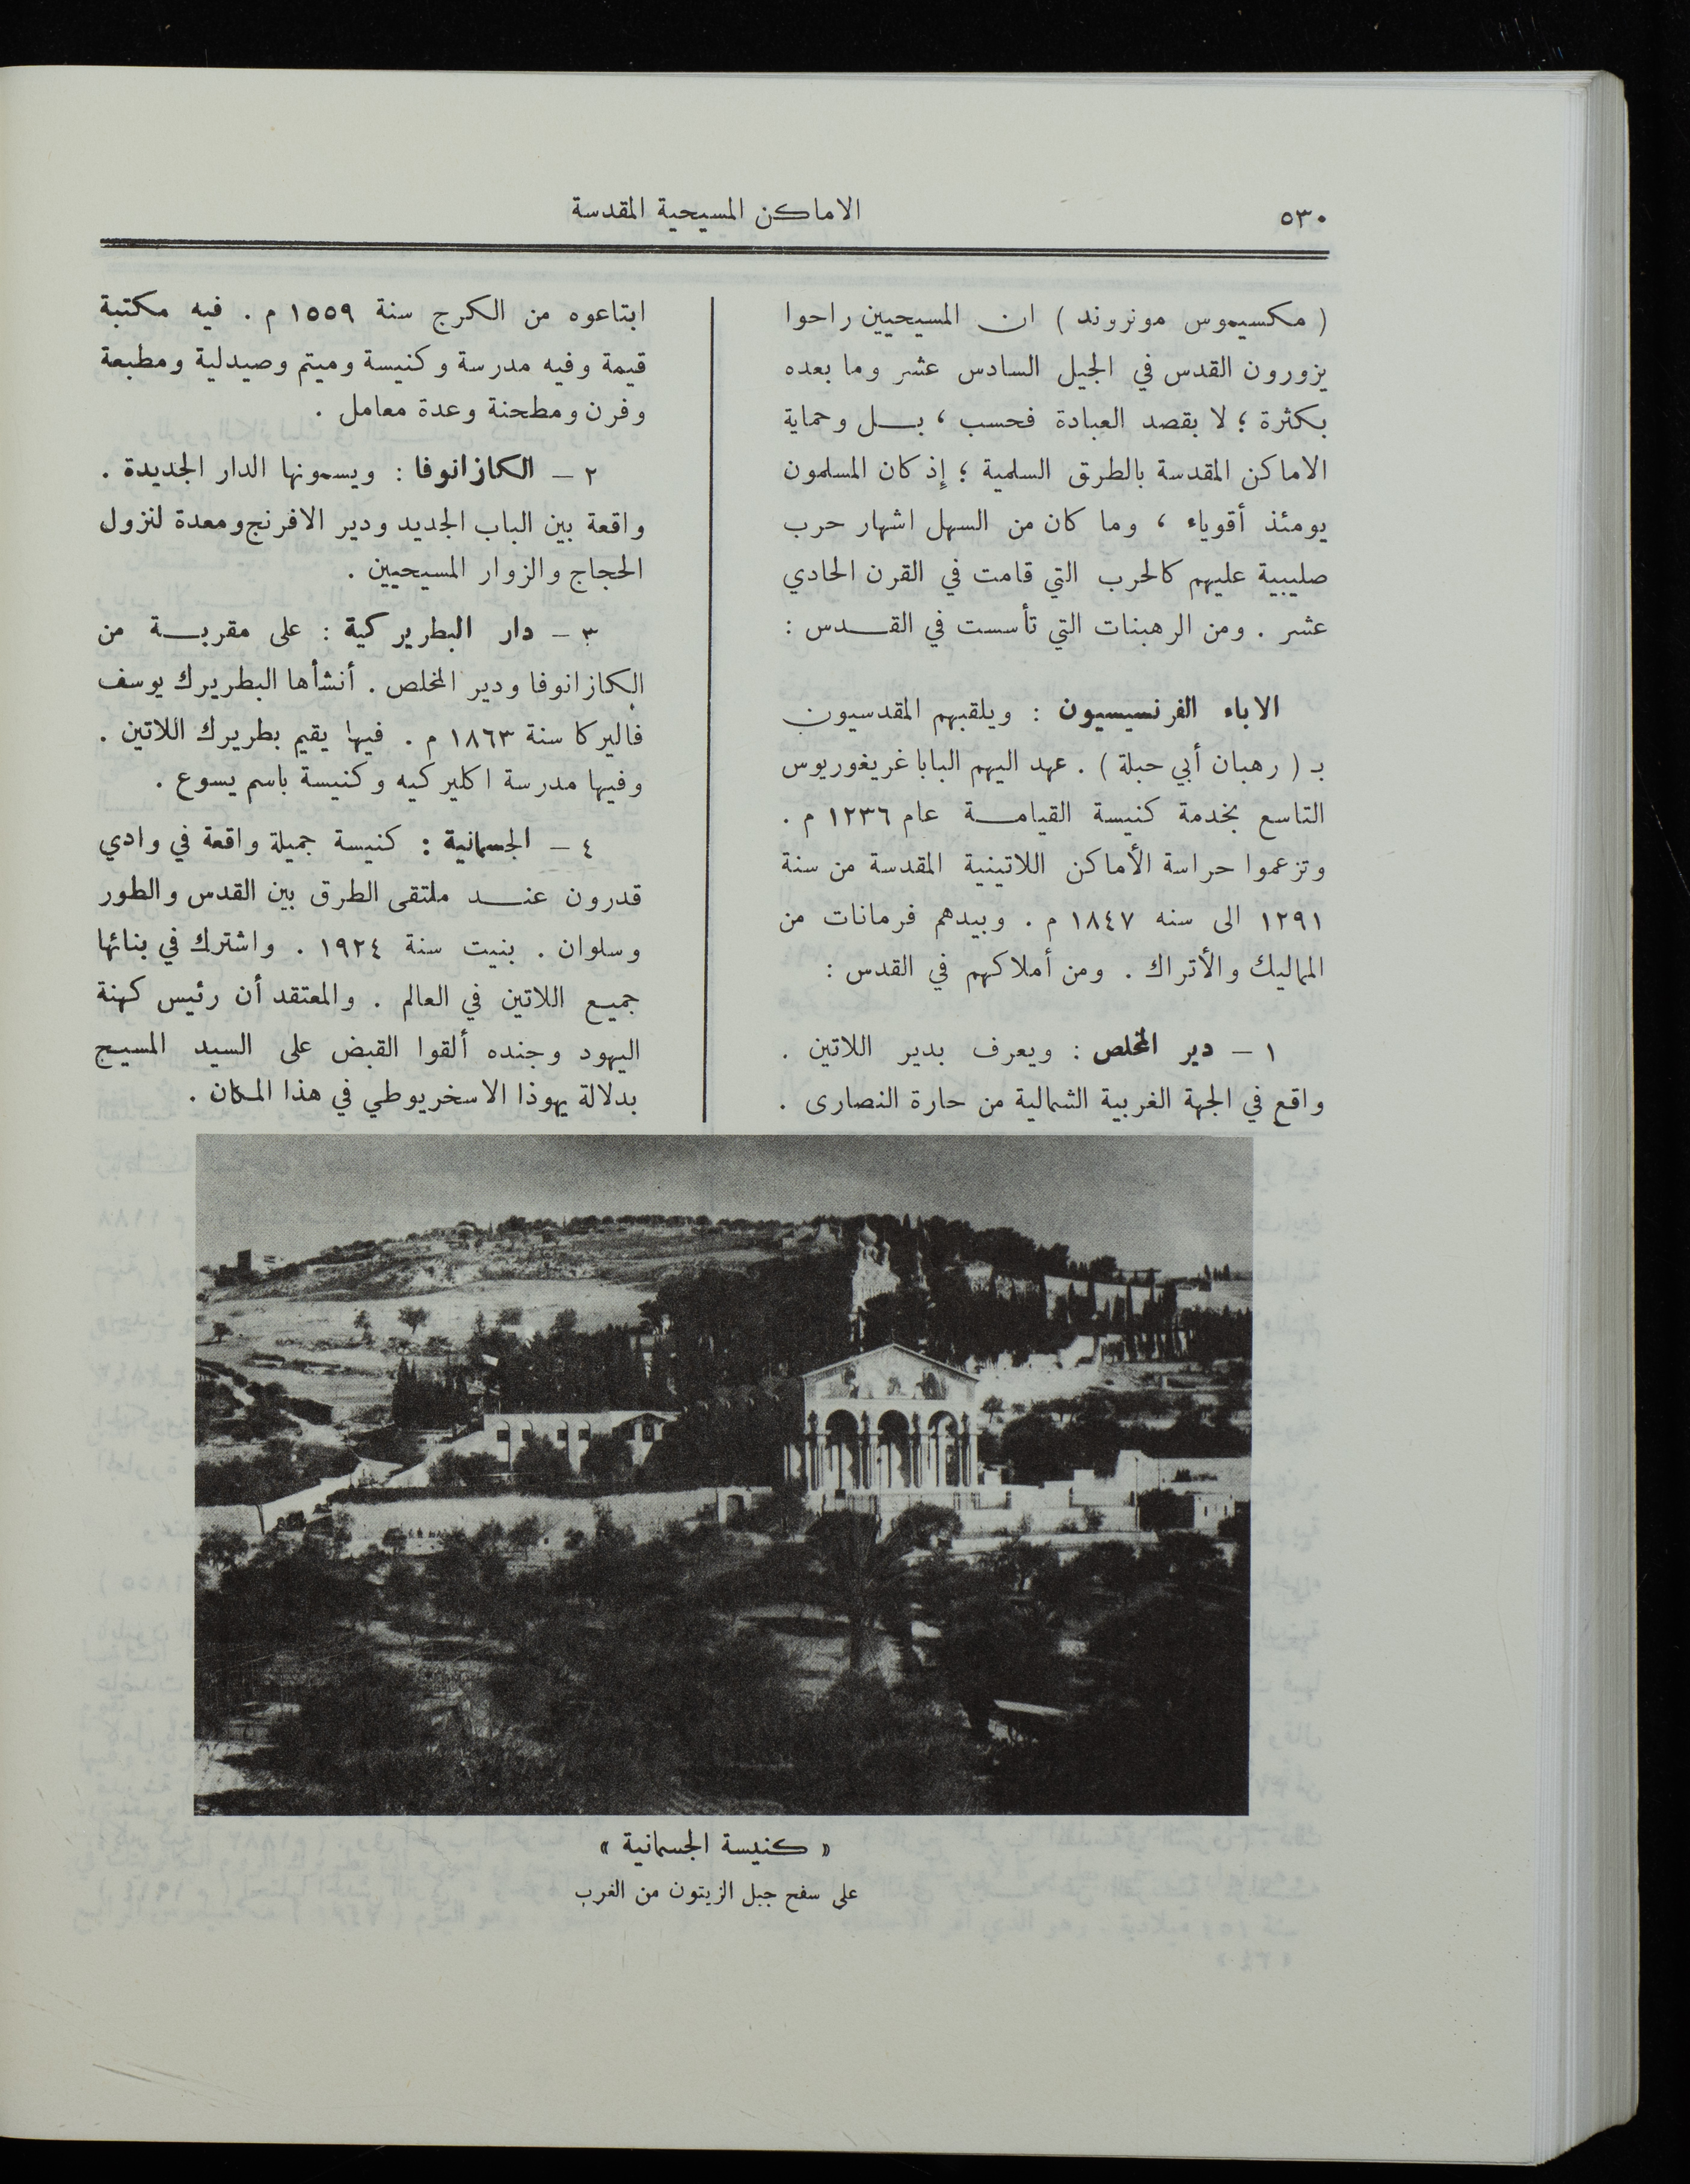 ٥٣٠
الاماكن المسيحية المقدسة
( مكسيموس مونروند ) ان المسيحيين راحوا
يزورون القدس في الجيل السادس عشر وما بعده
بكثرة ؛ لا بقصد العبادة فحسب ، بل وحماية
الاماكن المقدسة بالطرق السلمية ؛ إذ كان المسلمون
يومئذ أقوياء ، وما كان من السهل اشهار حرب
صليبية عليهم كالحرب التي قامت في القرن الحادي
عشر . ومن الرهبنات التي تأسست في القدس :
الاباء الفرنسيسيون : ويلقبهم المقدسيون
بـ ( رهبان أبي حبلة ) . عهد اليهم البابا غريغوريوس
التاسع بخدمة كنيسة القيامة عام ١٢٣٦ م .
وتزعموا حراسة الأماكن اللاتينية المقدسة من سنة
١٢٩١ الى سنه ١٨٤٧ م . وبيدهم فرمانات من
المماليك والأتراك . ومن أملاكهم في القدس :
١ – دير المخلص : ويعرف بدير اللاتين .
واقع في الجهة الغربية الشمالية من حارة النصارى .
ابتاعوه من الكرج سنة ١٥٥٩ م . فيه مكتبة
قيمة وفيه مدرسة وكنيسة وميتم وصيدلية ومطبعة
وفرن ومطحنة وعدة معامل .
٢ – الكازانوفا : ويسمونها الدار الجديدة .
واقعة بين الباب الجديد ودير الافرنج ومعدة لنزول
الحجاج والزوار المسيحيين .
٣ – دار البطريركية : على مقربة من
الكازانوفا ودير المخلص . أنشأها البطريرك يوسف
فاليركا سنة ١٨٦٣ م . فيها يقيم بطريرك اللاتين .
وفيها مدرسة اكليركيه وكنيسة باسم يسوع .
٤ – الجسمانية : كنيسة جميلة واقعة في وادي
قدرون عند ملتقى الطرق بين القدس والطور
وسلوان . بنيت سنة ١٩٢٤ . واشترك في بنائها
جميع اللاتين في العالم . والمعتقد أن رئيس كهنة
اليهود وجنده ألقوا القبض على السيد المسيح
بدلالة يهوذا الاسخريوطي في هذا المكان .
« كنيسة الجسمانية »
على سفح جبل الزيتون من الغرب